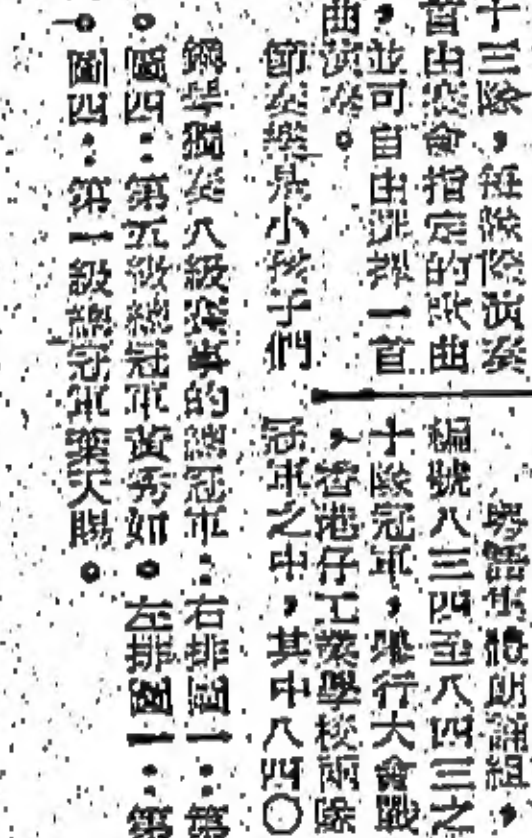 十三隊,每隊除演奏
首由大會指定的歌曲
,並可自由選擇一首
曲演奏。
節奏樂是小孩子們
粵語集體朗誦組,
編號八三四至八四三之
十隊冠軍,舉行大會戰
,香港仔工業學校兩隊
冠軍之中,其中八四〇
鋼琴獨奏八級賽事的總冠軍:右排圖一:第
。圖四:第五級總冠軍黃秀如。左排圖一:第
。圖四:第一級總冠軍葉天賜。